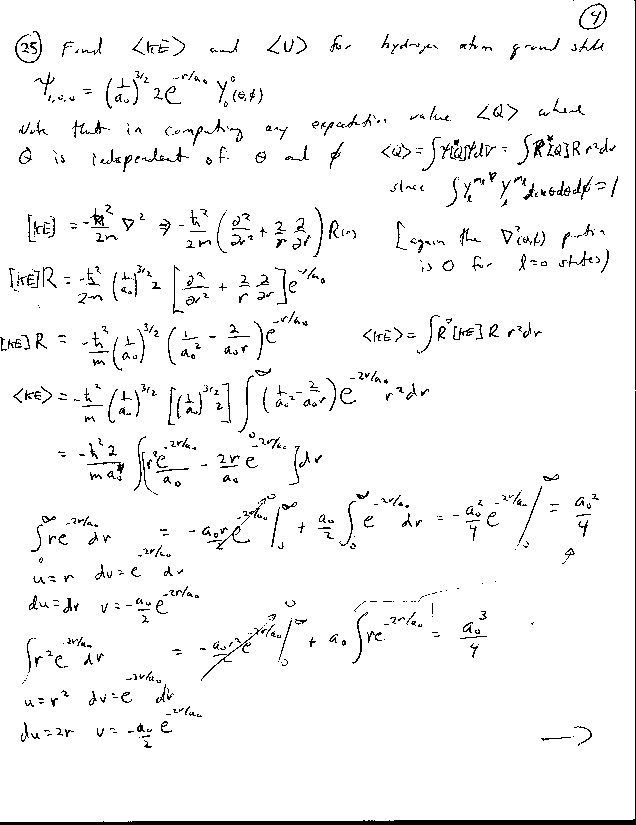 4
25 Find <KE> and <U> for hydrogen atom ground state
ψ₁,₀,₀ = (1/a₀)^3/2 2e^-r/a₀ Y₀⁰(θ,φ)
Note that in computing any expectation value <Q> where
Q is independent of θ and φ <Q> = ∫ψ*[Q]ψdV = ∫R*[Q]R r²dr
since ∫Y_l^m_l* Y_l^m_l sinθdθdφ = 1
[KE] = -ħ²/2m ∇² ⇒ -ħ²/2m (∂²/∂r² + 2/r ∂/∂r) R(r) [again the ∇²(θ,φ) portion
is 0 for l=0 states)
[KE]R = -ħ²/2m (1/a₀)^3/2 2 [∂²/∂r² + 2/r ∂/∂r] e^-r/a₀
[KE]R = -ħ²/m (1/a₀)^3/2 (1/a₀² - 2/a₀r) e^-r/a₀ <KE> = ∫R*[KE]R r²dr
<KE> = -ħ²/m (1/a₀)^3/2 [(1/a₀)^3/2 2] ∫₀^∞ (1/a₀² - 2/a₀r) e^-2r/a₀ r²dr
= -ħ²2/ma₀⁴ ∫[r²e^-2r/a₀/a₀ - 2r/a₀ e^-2r/a₀]dr
∫₀^∞ re^-2r/a₀ dr = -a₀r/2 e^-2r/a₀|₀^∞ + a₀/2 ∫₀^∞ e^-2r/a₀ dr = -a₀²/4 e^-2r/a₀|₀^∞ = a₀²/4
u=r dv=e^-2r/a₀ dr
du=dr v=-a₀/2 e^-2r/a₀
∫r²e^-2r/a₀ dr = -a₀r²/2 e^-2r/a₀|₀^∞ + a₀∫re^-2r/a₀ = a₀³/4
u=r² dv=e^-2r/a₀ dr
du=2r v=-a₀/2 e^-2r/a₀
→